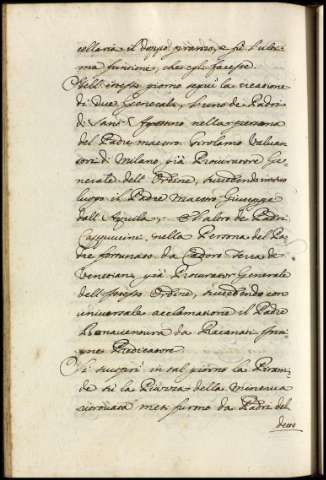 collaria il doppo pranzo, e fù l'ulti-
ma funzione, che egli facesse.
Nell'istesso giorno seguì la creazione
di due Generali, l'uno de Padri
di Sant' Agostino nella persona
del Padre maestro Girolamo Valvas
sori di Milano, già Procuratore Ge-
nerale dell'Ordine, succedendo in suo
luogo il Padre Maestro Giuseppe
dall'Aquila, e l'altro de Padri
Cappuccini, nella Persona del Pa-
dre fortunato da Cadoro Terra de
Venetiani, già Procurator Generale
dell'istesso Ordine, succedendo con
universale acclamatione il Padre
Bonaventura da Recanati, fom-
Predicatore
Si scoprì in tal giorno la Piram-
de sù la Piazza della Minerva
ritrovata mesi furno da Padri del